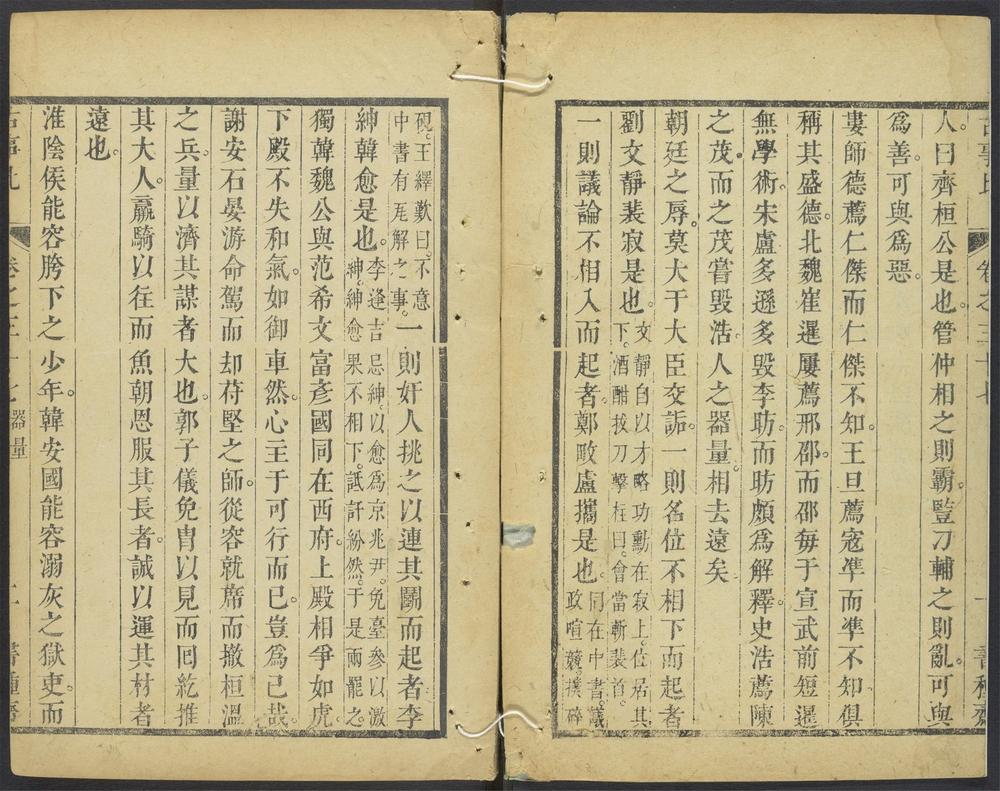 人。曰齊桓公是也。管仲相之則霸。豎刀輔之則亂。可與
為善。可與為惡。
婁師德薦仁傑而仁傑不知。王旦薦寇準而準不知。俱
稱其盛德。北魏崔暹屢薦邢邵。而邵每于宣武前短暹
無學術。宋盧多遜多毀李昉。而昉頗為解釋。史浩薦陳
之茂。而之茂嘗毀浩。人之器量。相去遠矣
朝廷之辱。莫大于大臣交詬。一則名位不相下而起者
劉文靜裴寂是也。文靜自以才略功勳在寂上。位居其下。酒酣拔刀擊柱曰。會當斬裴首。
一則議論不相入而起者。鄭畋盧攜是也。同在中書。議政喧競。撲碎
硯。王繹歎曰。不意中書有瓦解之事。一則奸人挑之以連其鬬而起者李
紳韓愈是也。李逢吉忌紳。以愈為京兆尹。免臺參以激紳。紳愈果不相下。詆訐紛然。于是兩罷之。
獨韓魏公與范希文富彥國同在西府。上殿相爭如虎
下殿不失和氣。如御車然。心主于可行而已。豈為己哉。
謝安石晏游命駕而却苻堅之師。從容就席而撤桓溫
之兵。量以濟其謀者大也。郭子儀免冑以見而回紇推
其大人。羸騎以往而魚朝恩服其長者。誠以運其材者
遠也。
淮陰侯能容胯下之少年。韓安國能容溺灰之獄吏。而
卷之三十七 器量